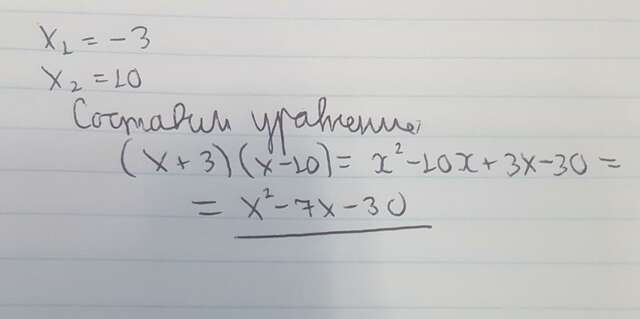 x₁ = -3
x₂ = 10
Составим уравнение:
(x+3)(x-10) = x² - 10x + 3x - 30 =
= x² - 7x - 30